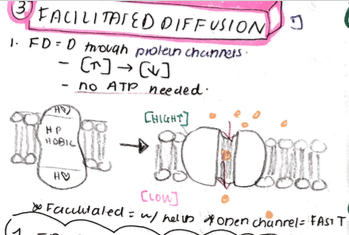 3 FACILITATED DIFFUSION
1. FD = D through protein channels.
- [↑] → [↓]
- no ATP needed.
[HIGH↑]
HP
HOBIC
[LOW]
* Facilitated = w/ help * open channel = FAST T